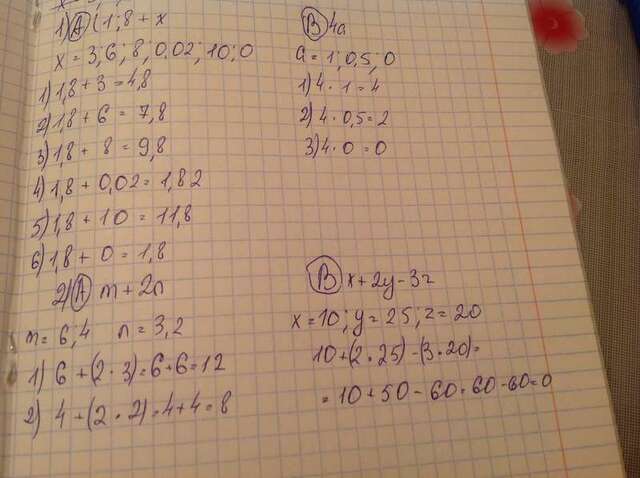 1) A (1;8 + x
x = 3; 6; 8; 0,02; 10; 0
1) 1,8 + 3 = 4,8
2) 1,8 + 6 = 7,8
3) 1,8 + 8 = 9,8
4) 1,8 + 0,02 = 1,82
5) 1,8 + 10 = 11,8
6) 1,8 + 0 = 1,8
B 4a
a = 1; 0,5; 0
1) 4 · 1 = 4
2) 4 · 0,5 = 2
3) 4 · 0 = 0
2) A m + 2n
m = 6; 4 n = 3, 2
1) 6 + (2 · 3) = 6 + 6 = 12
2) 4 + (2 · 2) = 4 + 4 = 8
B x + 2y - 3z
x = 10; y = 25; z = 20
10 + (2 · 25) - (3 · 20) =
= 10 + 50 - 60 = 60 - 60 = 0